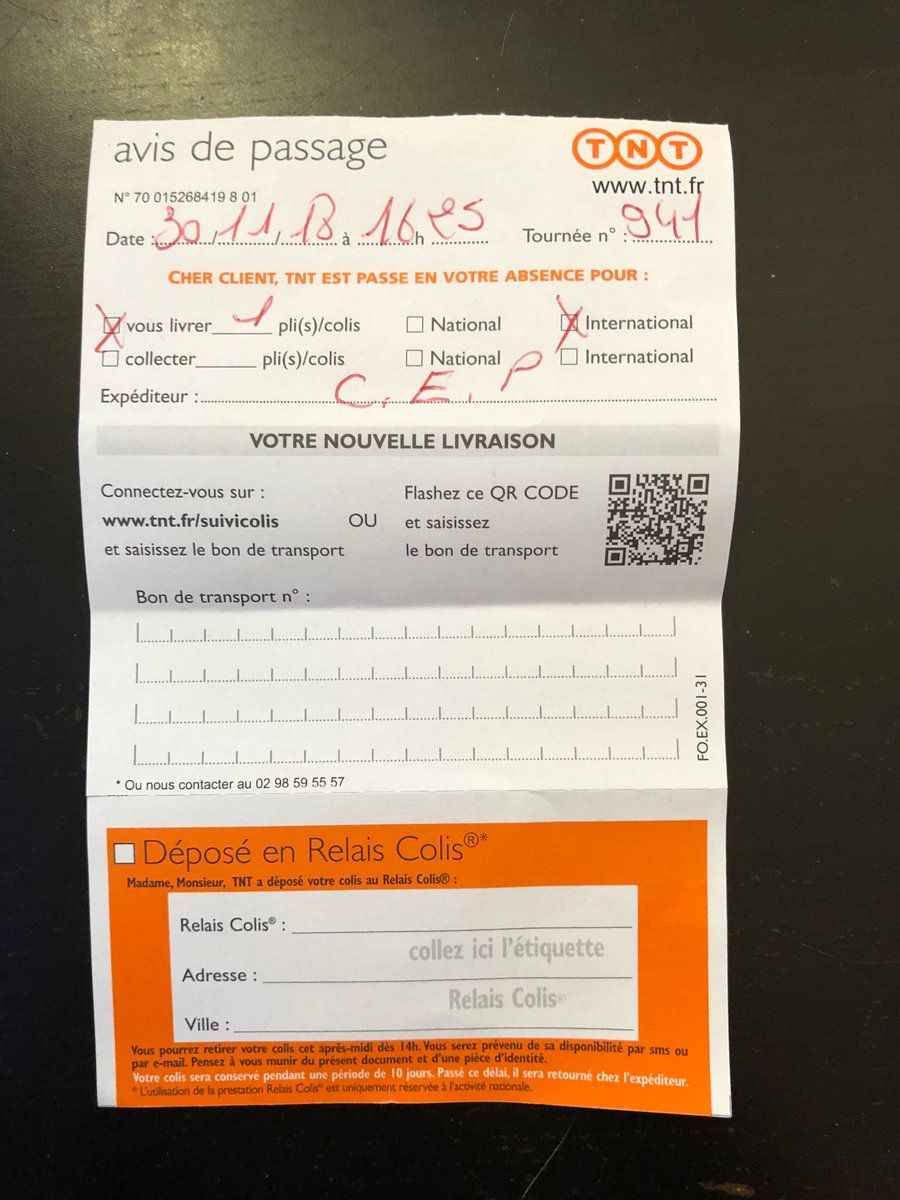 avis de passage
TNT
www.tnt.fr
N° 70 015268419 8 01
Date : 30/11/18 à 16h 25 Tournée n° : 941
CHER CLIENT, TNT EST PASSE EN VOTRE ABSENCE POUR :
vous livrer 1 pli(s)/colis National International
collecter pli(s)/colis National International
Expéditeur : C.E.P
VOTRE NOUVELLE LIVRAISON
Connectez-vous sur :
www.tnt.fr/suivicolis
et saisissez le bon de transport
OU
Flashez ce QR CODE
et saisissez
le bon de transport
Bon de transport n° :
FO.EX.001-31
* Ou nous contacter au 02 98 59 55 57
Déposé en Relais Colis®*
Madame, Monsieur, TNT a déposé votre colis au Relais Colis® :
Relais Colis® :
collez ici l'étiquette
Adresse :
Relais Colis®
Ville :
Vous pourrez retirer votre colis cet après-midi dès 14h. Vous serez prévenu de sa disponibilité par sms ou
par e-mail. Pensez à vous munir du présent document et d'une pièce d'identité.
Votre colis sera conservé pendant une période de 10 jours. Passé ce délai, il sera retourné chez l'expéditeur.
* L'utilisation de la prestation Relais Colis® est uniquement réservée à l'activité nationale.